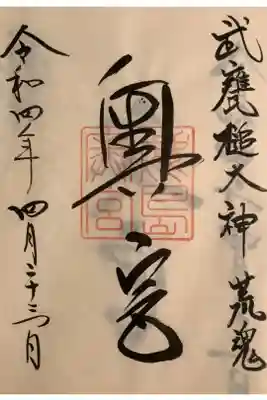 武甕槌大神 荒魂
奥宮
鹿島
奥宮
令和四年 四月二十三日